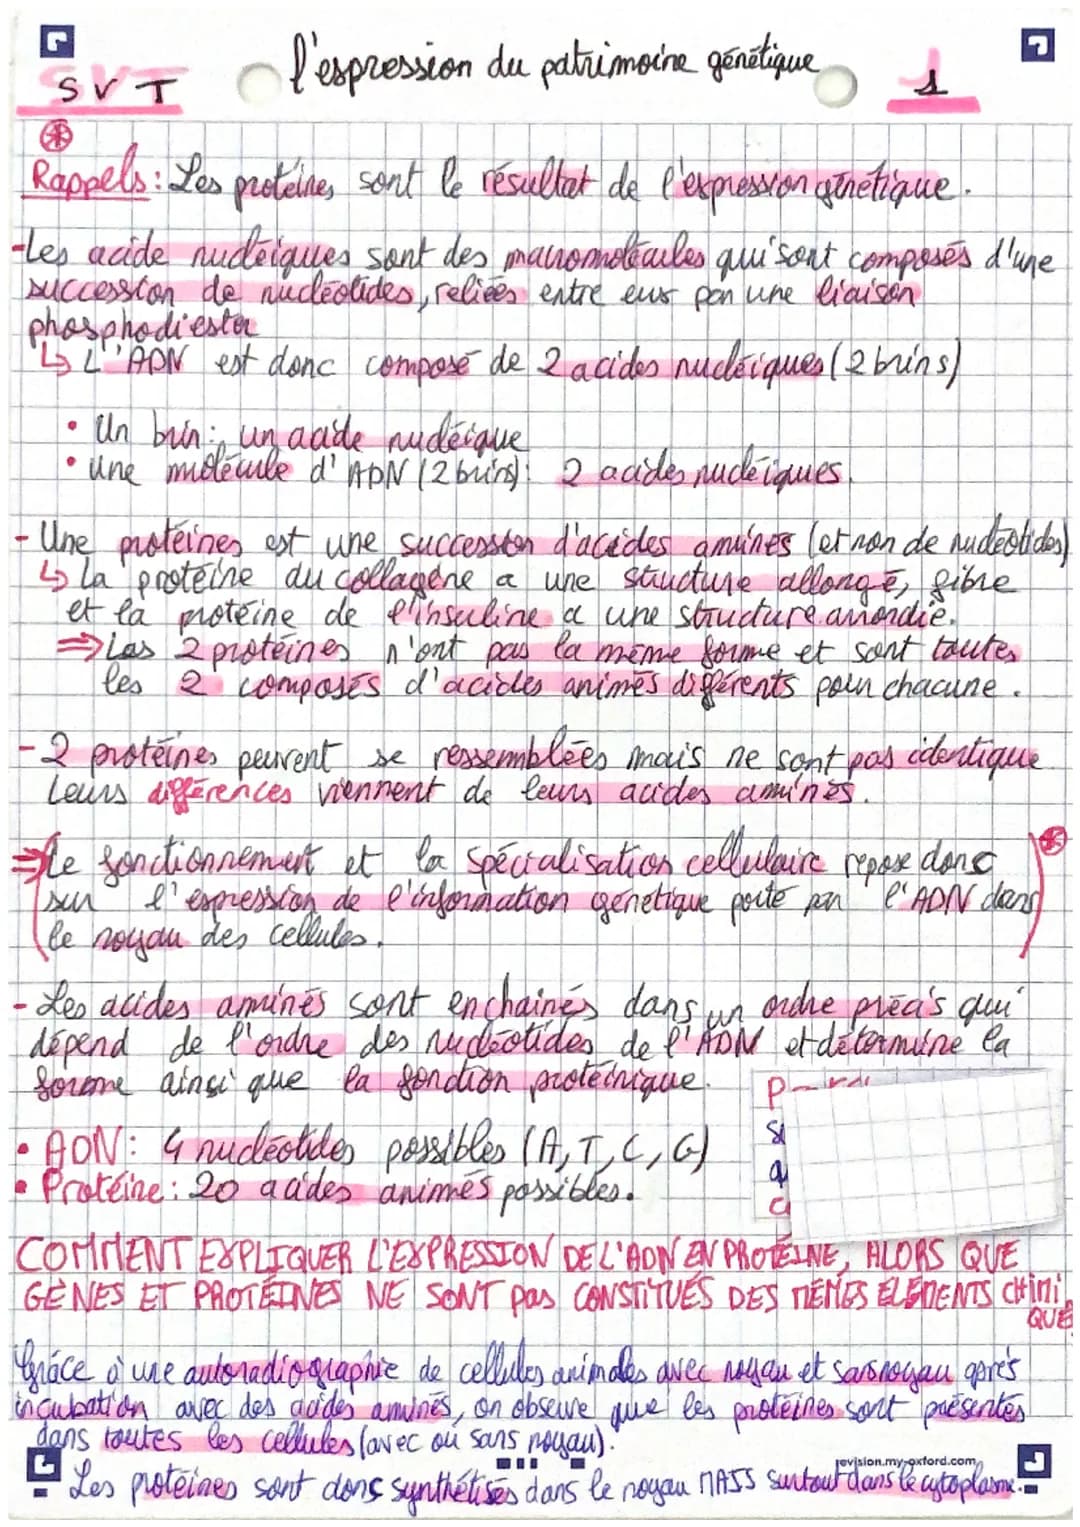 SVT
l'expression du patrimoine génétique
1
Rappels: Les protéines sont le résultat de l'expression génétique.
-Les acide nucléiques sont des macromolécules qui sont composés d'une
succession de nucléotides, reliées entre eux par une liaison
phosphodiester
↳ L'ADN est donc composé de 2 acides nucléiques (2 brins)
• Un brin: un acide nucléique
• une molécule d'ADN (2 brins): 2 acides nucléiques.
- Une protéines est une succession d'acides aminés (et non de nucléotides)
↳ la protéine du collagène a une structure allongé, fibre
et la protéine de l'insuline a une structure arrondie.
⇒ Les 2 protéines n'ont pas la même forme et sont toutes
les 2 composés d'acides animés différents pour chacune.
- 2 protéines peuvent se ressemblées mais ne sont pas identique
Leurs différences viennent de leurs acides aminés.
⇒ Le fonctionnement et la spécialisation cellulaire repose donc
sur l'expression de l'information génétique porté par l'ADN dans
le noyau des cellules.
- Les acides aminés sont enchainés dans un ordre précis qui
dépend de l'ordre des nucléotides de l'ADN et détermine la
forme ainsi que la fonction protéinique.
• ADN: 4 nucléotides possibles (A, T, C, G)
• Protéine: 20 acides animés possibles.
COMMENT EXPLIQUER L'EXPRESSION DE L'ADN EN PROTÉINE, ALORS QUE
GÈNES ET PROTÉINES NE SONT pas CONSTITUÉS DES MÊMES ÉLÉMENTS CHIMI
QUE
Grâce à une autoradiographie de cellules animales avec noyau et sans noyau après
incubation avec des acides aminés, on observe que les protéines sont présentes
dans toutes les cellules (avec ou sans noyau).
revision.my-oxford.com
Les protéines sont dons synthétisés dans le noyau MAIS surtout dans le cytoplasme.